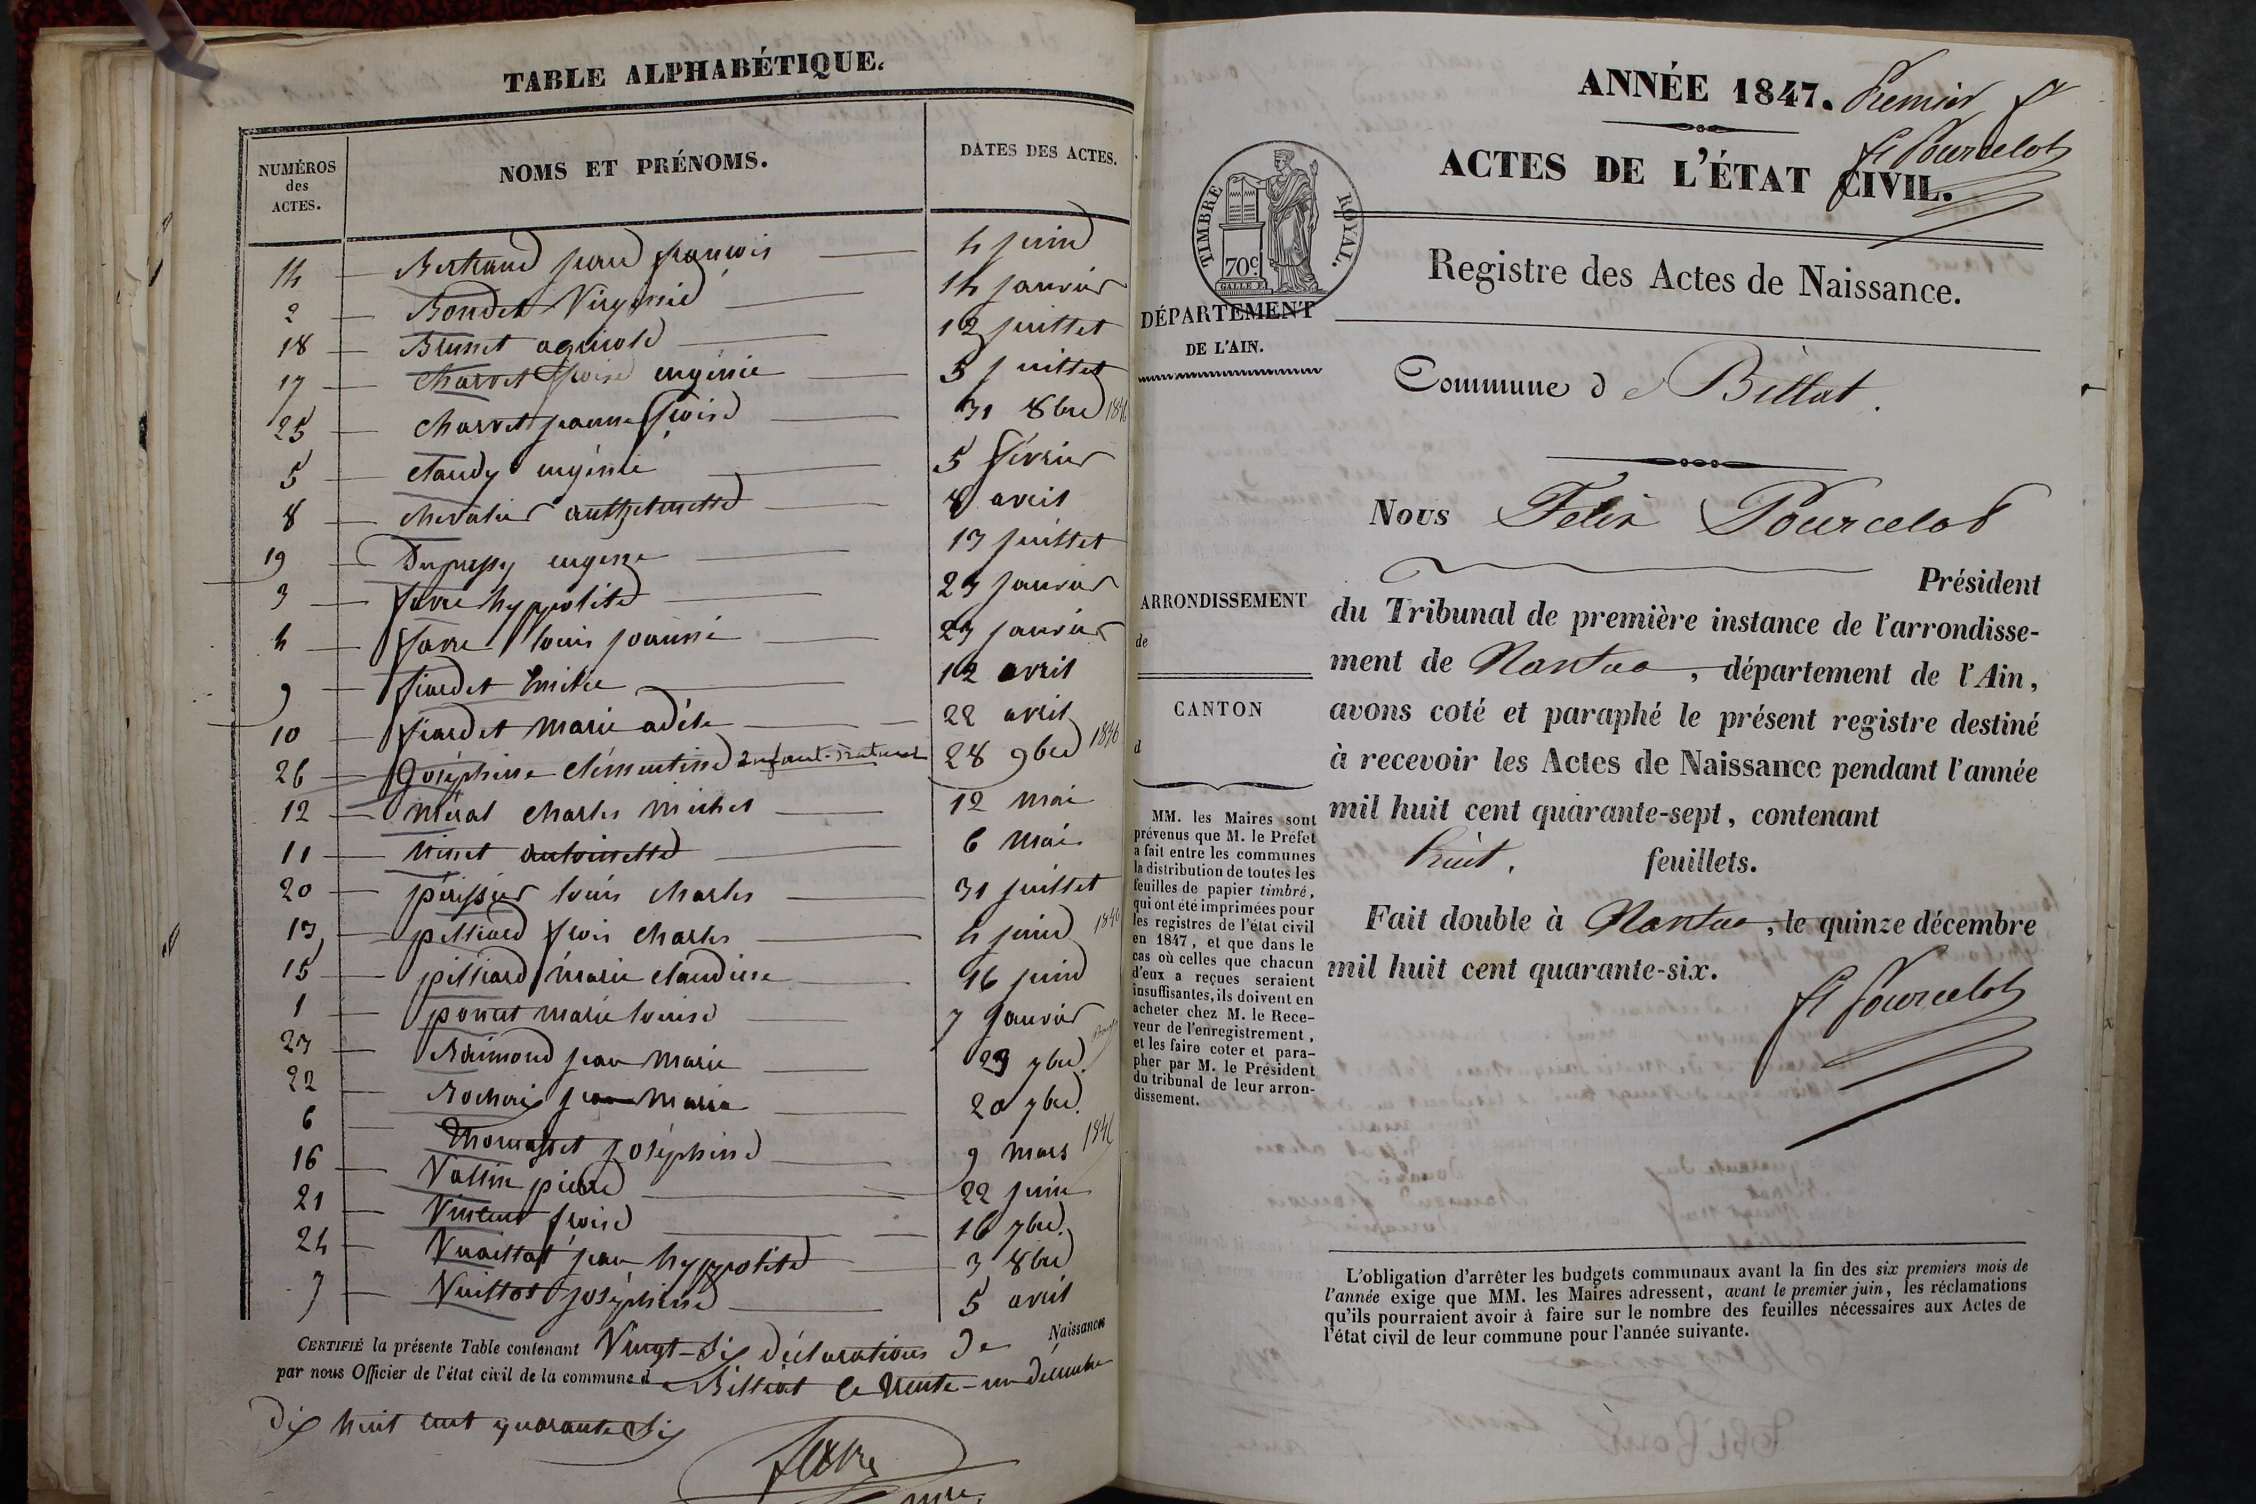 TABLE ALPHABÉTIQUE.
NUMÉROS des ACTES. NOMS ET PRÉNOMS. DATES DES ACTES.
14 Bertrand jean françois 4 juin
2 Bondet Virginie 14 janvier
18 Brunet agricole 12 juillet
17 Charvet froise eugénie 5 juillet
25 Charvet jeanne froise 31 8bre 1846
5 Claudy eugénie 5 février
8 Chevalier anthelmette 8 avril
19 Dupussy eugene 13 juillet
3 favre hyppolite 23 janvier
4 favre louis joanni 23 janvier
9 fiardet Emilie 12 avril
10 fiardet marie adèle 22 avril
26 Joséphine clémentine Enfant-naturel 28 9bre 1846
12 Méral Charles michel 12 mai
11 Ninet antoinette 6 mai
20 périssier louis charles 31 juillet
13 pilliard frois charles 4 juin 1846
15 pilliard marie claudine 16 juin
1 poncet marie louise 7 janvier
23 Raimond jean marie 23 7bre
22 Rochaix jean maria 20 7bre.
6 Thomasset joséphine 9 mars 1846
16 Vallin pierre 22 juin
21 Vincent froise 16 7bre.
24 Vuaillat jean hyppolite 3 8bre
7 Vuillot joséphine 5 avril
CERTIFIÉ la présente Table contenant Vingt-Six déclarations De Naissances
par nous Officier de l'état civil de la commune d Billiat le trente-un décembre
Dix huit cent quarante Six
favre
ANNÉE 1847. Premier f
f Pourcelot
ACTES DE L'ÉTAT CIVIL.
TIMBRE ROYAL.
70c
Registre des Actes de Naissance.
DÉPARTEMENT
DE L'AIN.
Commune de Billat.
Nous Felix Pourcelot
Président
ARRONDISSEMENT
de
CANTON
d
du Tribunal de première instance de l'arrondisse-
ment de Nantua, département de l'Ain,
avons coté et paraphé le présent registre destiné
à recevoir les Actes de Naissance pendant l'année
mil huit cent quarante-sept, contenant
huit. feuillets.
Fait double à Nantua, le quinze décembre
mil huit cent quarante-six.
f Pourcelot
MM. les Maires sont
prévenus que M. le Préfet
a fait entre les communes
la distribution de toutes les
feuilles de papier timbré,
qui ont été imprimées pour
les registres de l'état civil
en 1847, et que dans le
cas où celles que chacun
d'eux a reçues seraient
insuffisantes, ils doivent en
acheter chez M. le Rece-
veur de l'enregistrement,
et les faire coter et para-
pher par M. le Président
du tribunal de leur arron-
dissement.
L'obligation d'arrêter les budgets communaux avant la fin des six premiers mois de
l'année exige que MM. les Maires adressent, avant le premier juin, les réclamations
qu'ils pourraient avoir à faire sur le nombre des feuilles nécessaires aux Actes de
l'état civil de leur commune pour l'année suivante.